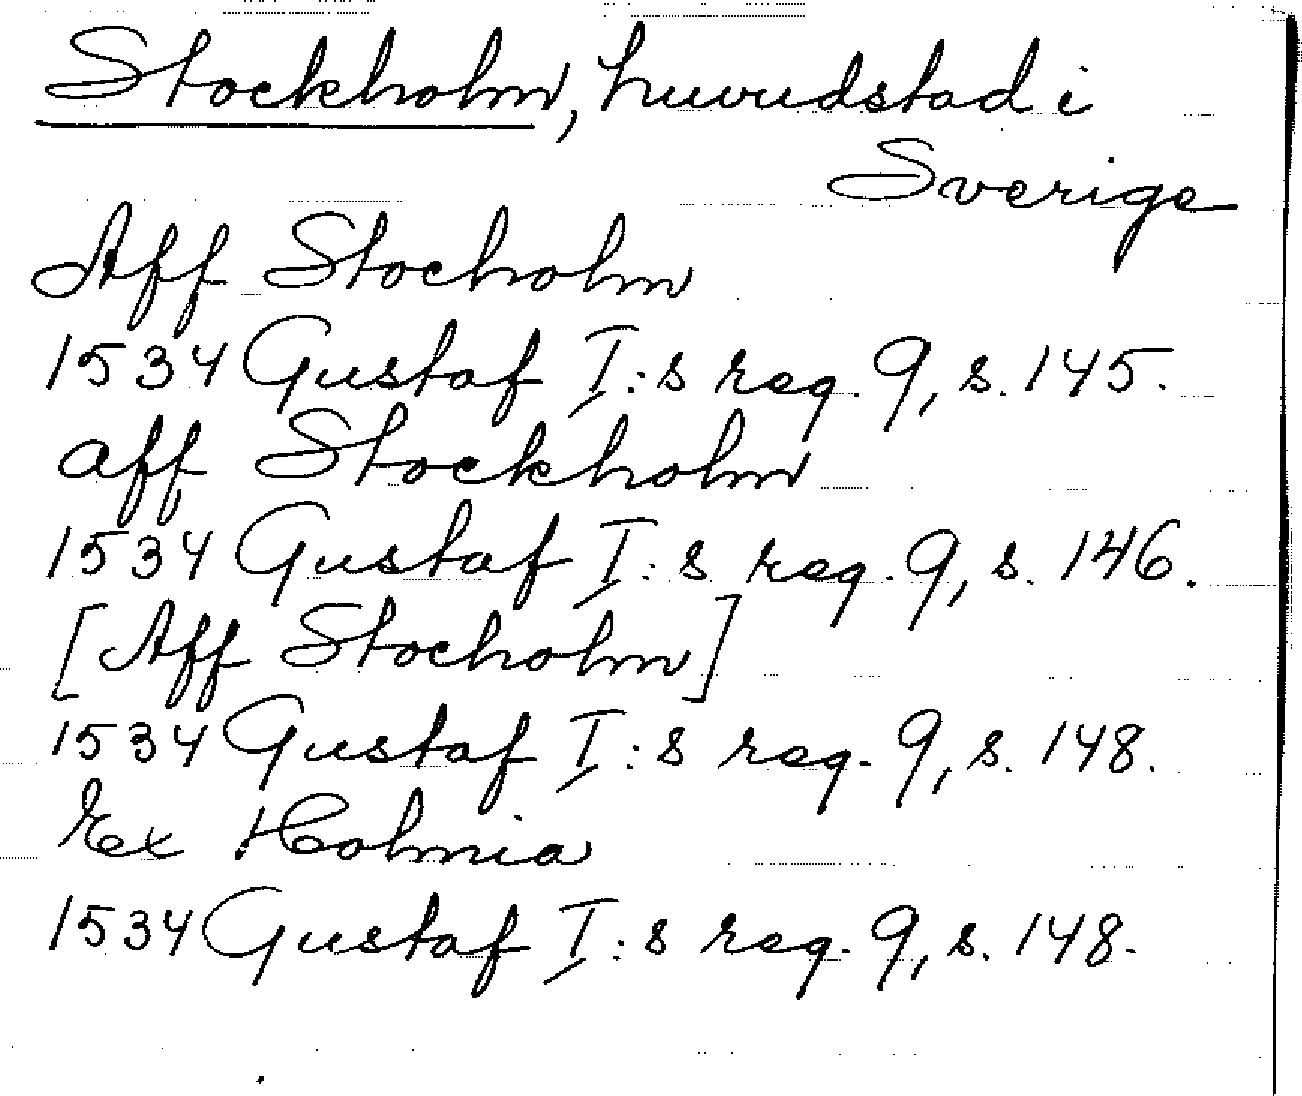 Stockholm, huvudstad i
Sverige
Aff Stocholm
1534 Gustaf I:s reg. 9, s. 145.
aff Stockholm
1534 Gustaf I:s reg. 9, s. 146.
[Aff Stocholm]
1534 Gustaf I:s reg. 9, s. 148.
Ex Holmia
1534 Gustaf I:s reg. 9, s. 148.